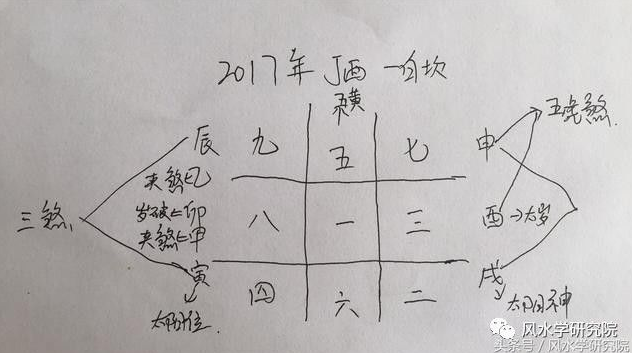 2017年 丁酉 一白坎
五黄
五鬼煞
辰 九 五 七 申
夹煞←乙
三煞
岁破←卯 八 一 三 酉→太岁
夹煞←甲
寅 四 六 二 戌
风水学研究院
头条号 / 风水学研究院